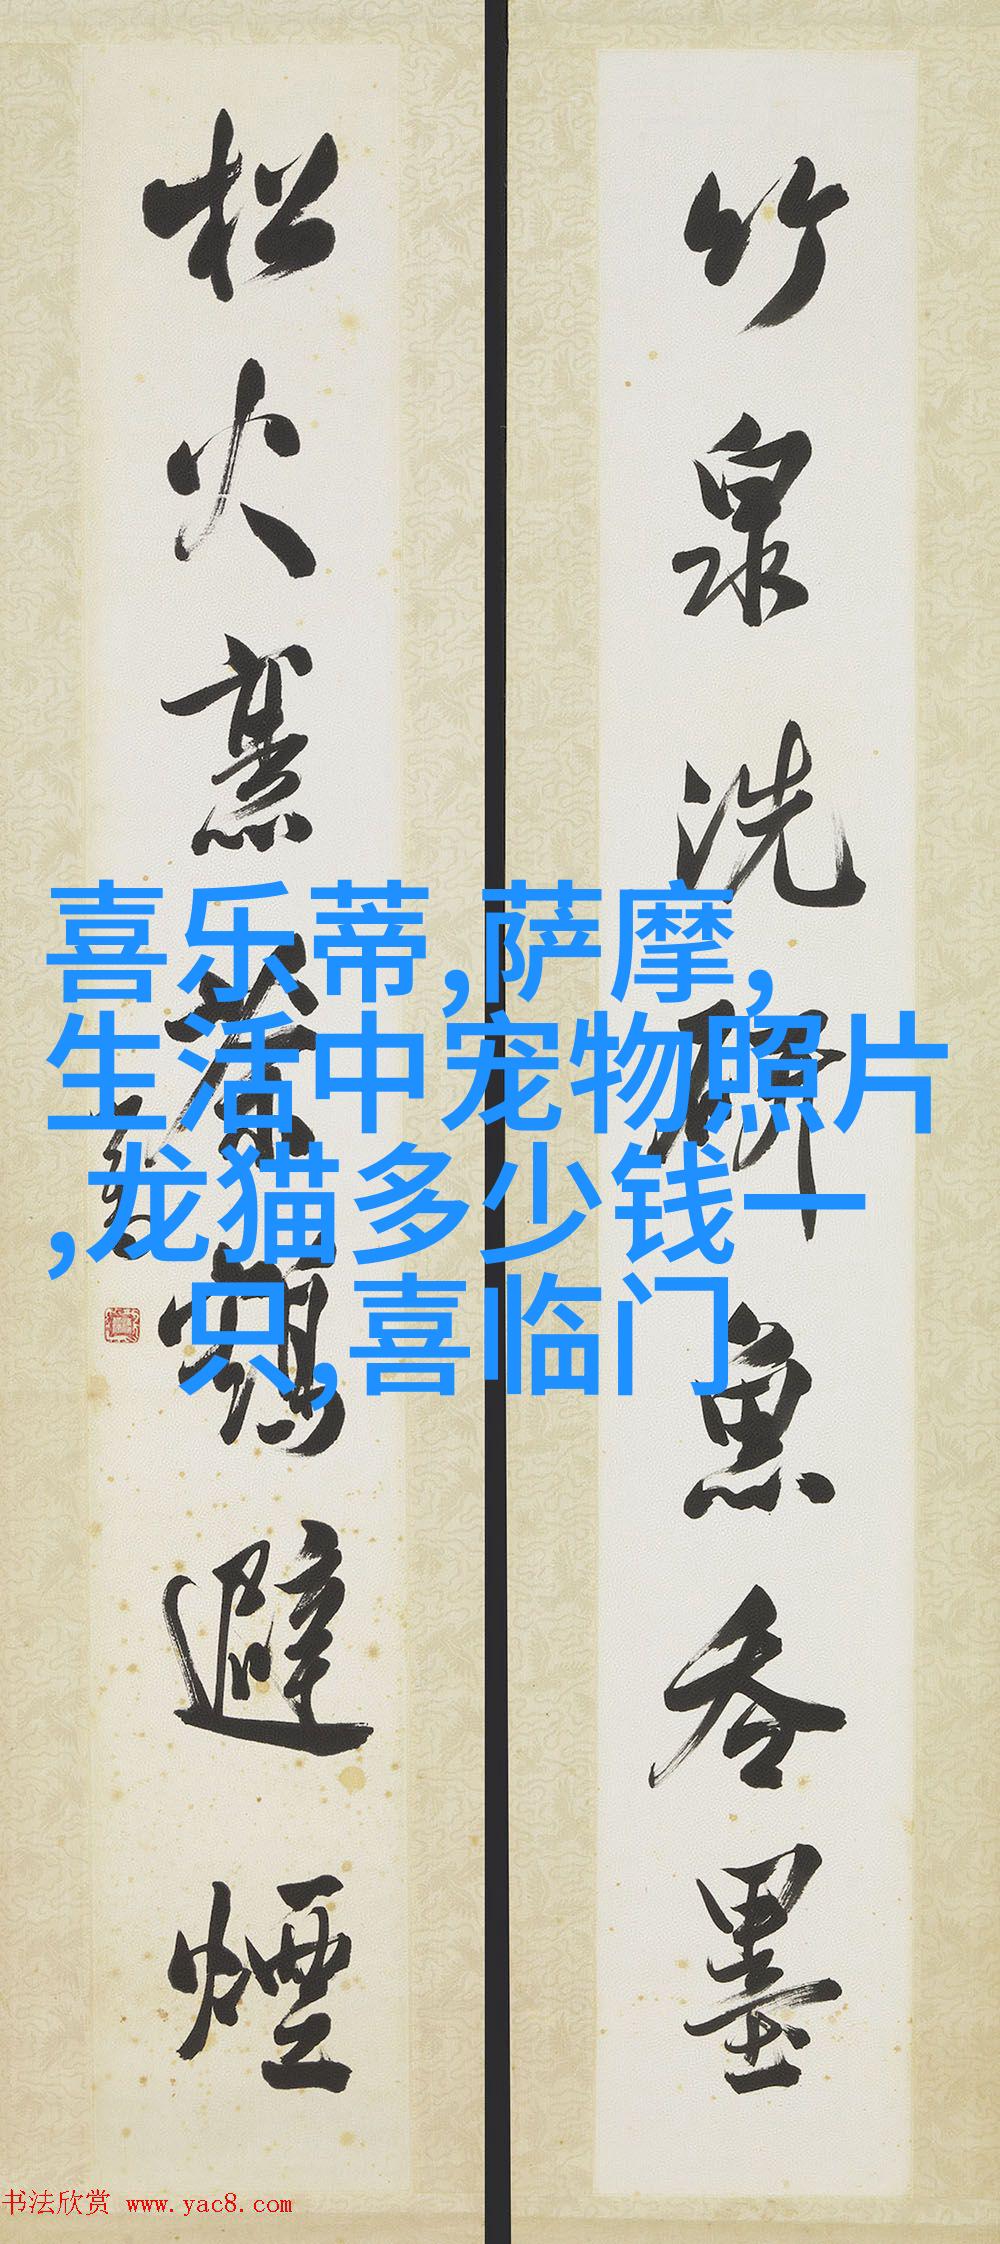 竹泉洗研魚吞墨
松火烹茶鶴避煙
喜乐蒂,萨摩,
生活中宠物照片
,龙猫多少钱一
只,喜临门
书法欣赏 www.yac8.com